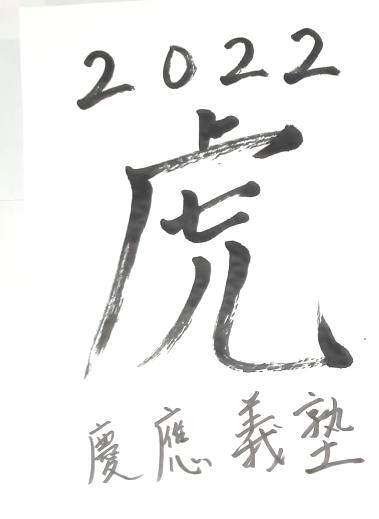 2022
虎
慶應義塾